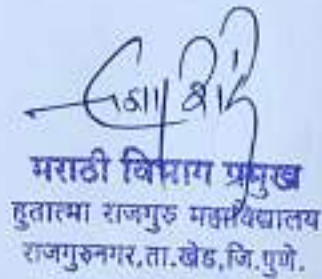 मराठी विभाग प्रमुख
हुतात्मा राजगुरु महाविद्यालय
राजगुरुनगर,ता.खेड,जि.पुणे.